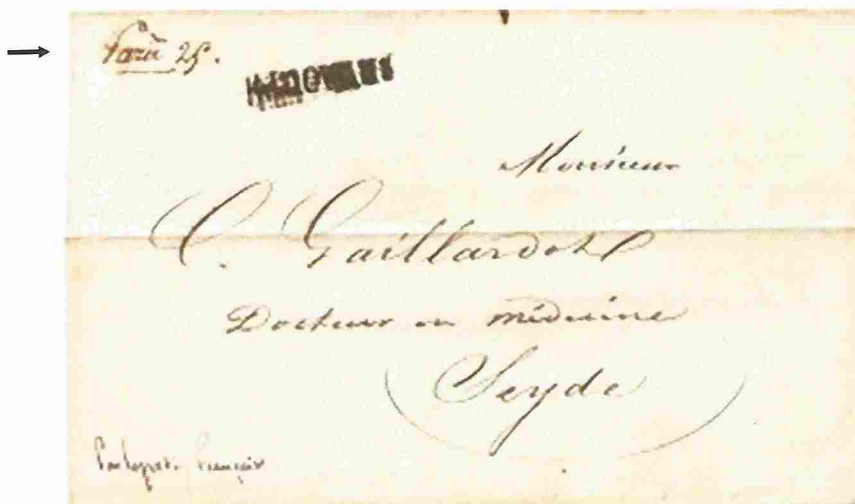 Para 25.
Monsieur
C. Gaillardot
Docteur en médecine
Seyde
français